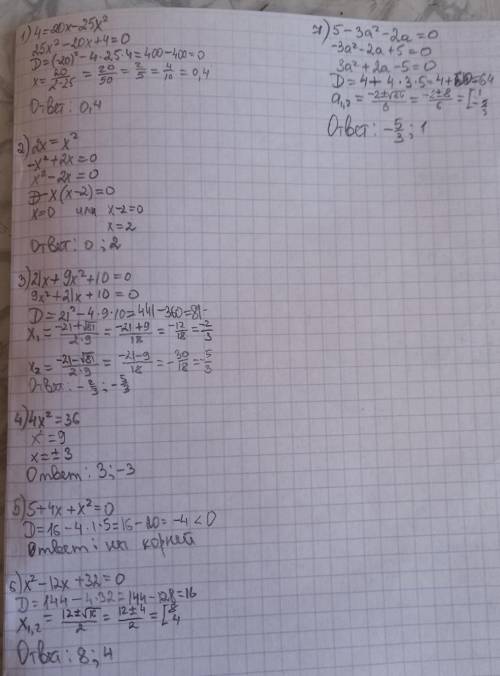 1) 4=20x-25x²
25x²-20x+4=0
D=(-20)²-4·25·4=400-400=0
x=20/2·25=20/50=2/5=4/10=0,4
Ответ: 0,4
2) 2x=x²
-x²+2x=0
x²-2x=0
x(x-2)=0
x=0 или x-2=0
x=2
Ответ: 0; 2
3) 21x+9x²+10=0
9x²+21x+10=0
D=21²-4·9·10=441-360=81
x₁=-21+√81/2·9=-21+9/18=-12/18=-2/3
x₂=-21-√81/2·9=-21-9/18=-30/18=-5/3
Ответ: -2/3; -5/3
4) 4x²=36
x²=9
x=±3
Ответ: 3; -3
5) 5+4x+x²=0
D=16-4·1·5=16-20=-4<0
Ответ: корней
6) x²-12x+32=0
D=144-4·32=144-128=16
x₁,₂=12±√16/2=12±4/2=[8 4
Ответ: 8; 4
7) 5-3a²-2a=0
-3a²-2a+5=0
3a²+2a-5=0
D=4+4·3·5=4+60=64
a₁,₂=-2±√64/6=-2±8/6=[1 -5/3
Ответ: -5/3; 1